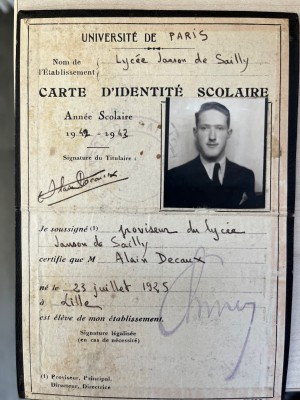 UNIVERSITÉ DE PARIS
Nom de l'Établissement. Lycée Janson de Sailly
CARTE D'IDENTITÉ SCOLAIRE
Année Scolaire
1942 - 1943
Signature du Titulaire :
Alain Decaux
Je soussigné (1) proviseur du lycée
Janson de Sailly
certifie que M Alain Decaux
né le 23 juillet 1925
à Lille
est élève de mon établissement.
Signature légalisée
(en cas de nécessité)
(1) Proviseur, Principal.
Directeur, Directrice